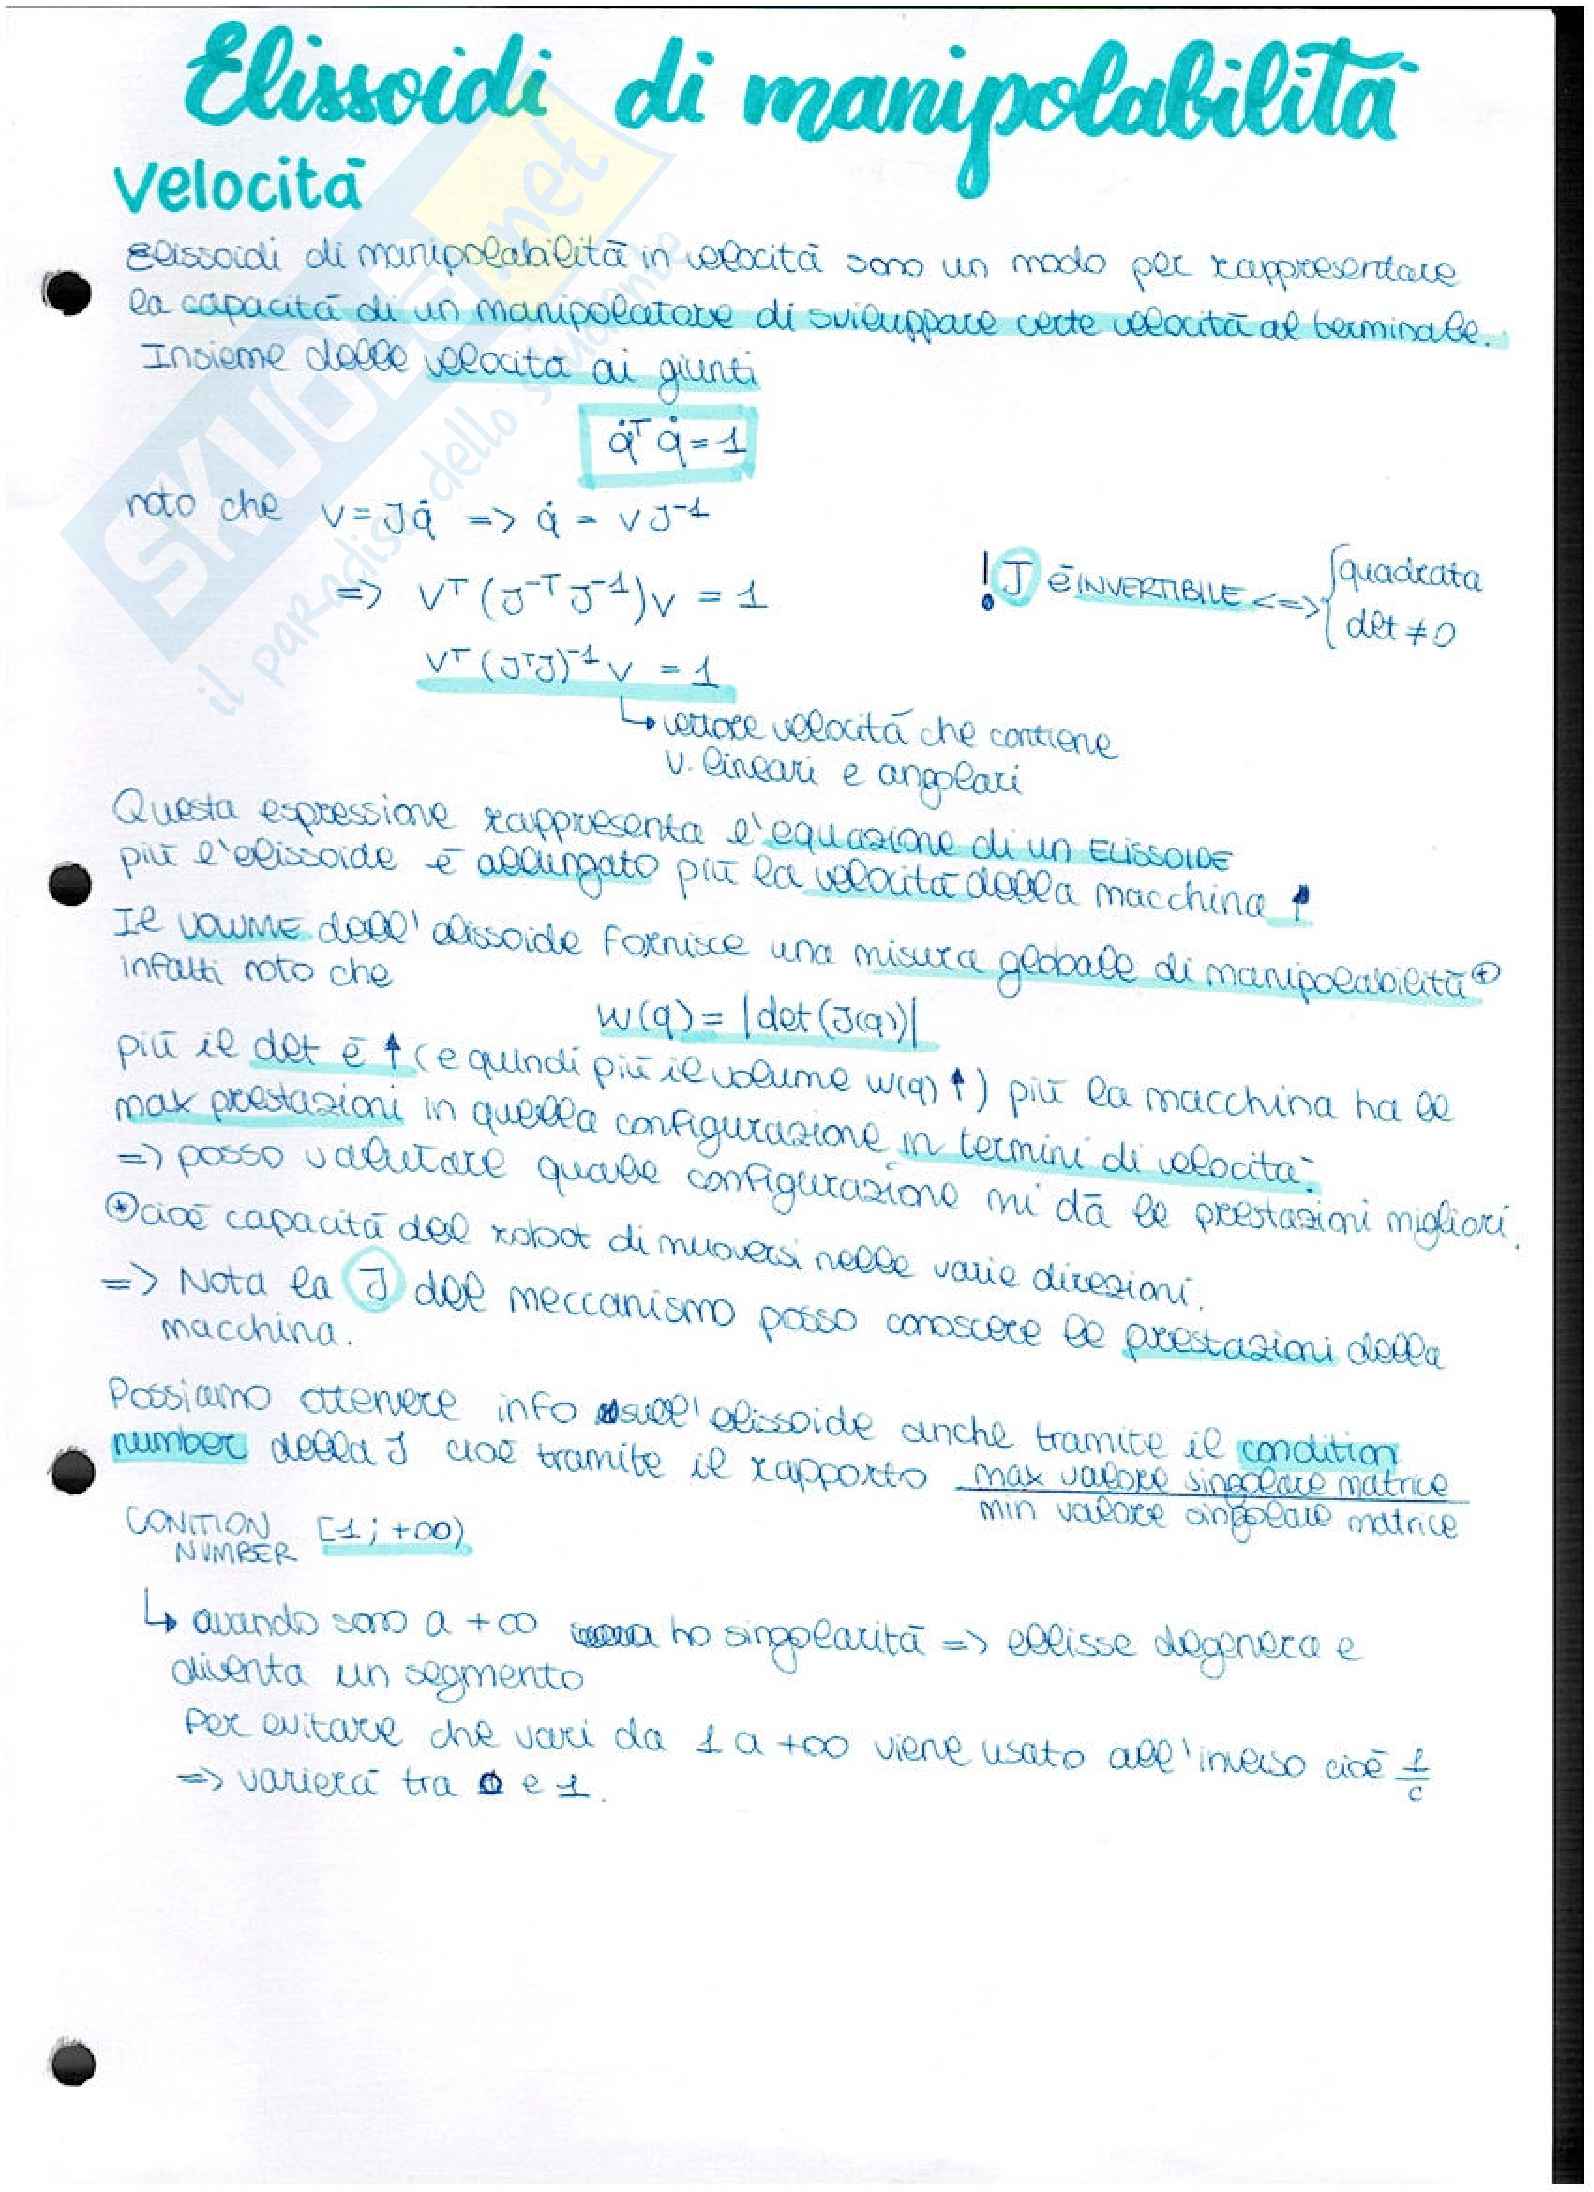 Elissoidi di manipolabilità
Velocità
Elissoidi di manipolabilità in velocità sono un modo per rappresentare
la capacità di un manipolatore di sviluppare certe velocità al terminale.
Insieme delle velocità ai giunti
q̇ᵀ q̇ = 1
noto che v = Jq̇ => q̇ = v J⁻¹
=> vᵀ (J⁻ᵀ J⁻¹) v = 1
! J è INVERTIBILE <=> { quadrata
det ≠ 0
vᵀ (JᵀJ)⁻¹ v = 1
↳ vettore velocità che contiene
v. lineari e angolari
Questa espressione rappresenta l'equazione di un ELISSOIDE
più l'elissoide è allungato più la velocità della macchina ↑
Il VOLUME dell' elissoide fornisce una misura globale di manipolabilità ⊕
infatti noto che
w(q) = |det(J(q))|
più il det è ↑ (e quindi più il volume w(q) ↑) più la macchina ha le
max prestazioni in quella configurazione in termini di velocità.
=> posso valutare quale configurazione mi dà le prestazioni migliori.
⊕ cioè capacità del robot di muoversi nelle varie direzioni.
=> Nota la J del meccanismo posso conoscere le prestazioni della
macchina.
Possiamo ottenere info sull' elissoide anche tramite il condition
number della J cioè tramite il rapporto max valore singolare matrice
min valore singolare matrice
CONITION [1; +∞)
NUMBER
↳ quando sono a +∞ ho singolarità => ellisse degenera e
diventa un segmento
Per evitare che vari da 1 a +∞ viene usato all'inverso cioè 1/c
=> varierà tra 0 e 1.
SKUOLA.net
il paradiso dello studente